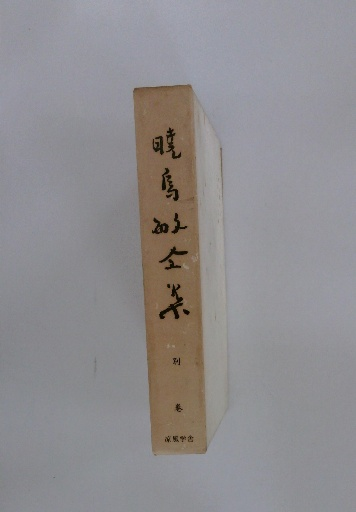 暁烏敏全集
別巻
涼風学舎